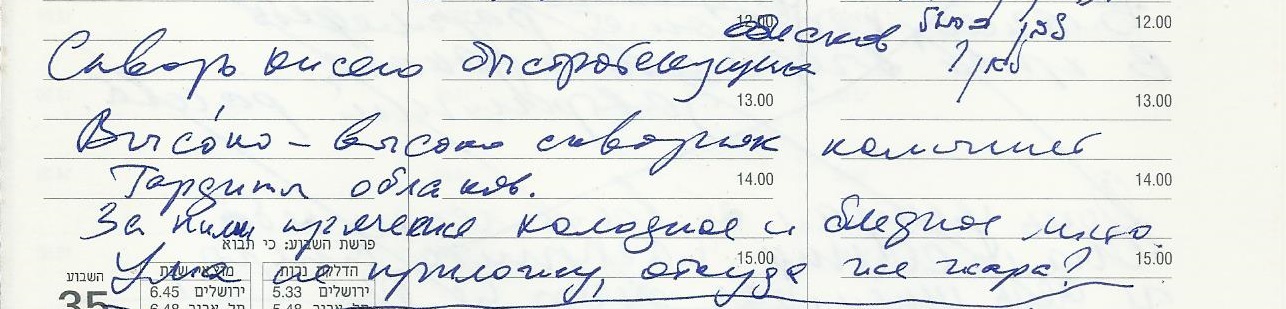 12.00 12.00
облаков
Сквозь кисею быстротекущих
13.00 13.00
Высо́ко – высоко сквозняк колышет
14.00 14.00
Гардины облаков.
За ними холодное и бледное
פרשת השבוע: כי תבוא
15.00 15.00
Ума не приложу, откуда же жара?
השבוע מוצאי שבת הדלקת נרות
35 ירושלים 6.45 ירושלים 5.33
תל אביב 6.48 תל אביב 5.48